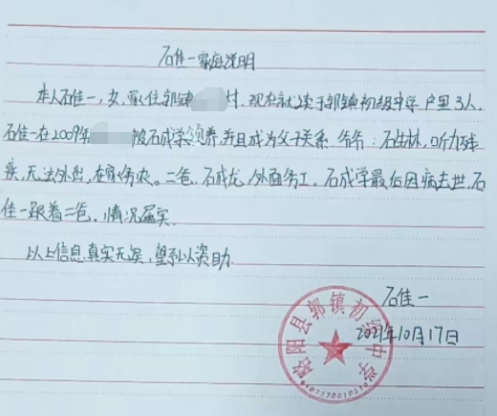 石佳一家庭说明
本人石佳一，女，家住郭镇 村，现在就读于郭镇初级中学户里3人，
石佳一在2009年 被石成学领养，并且成为父子关系 爷爷：石生林，听力残
疾，无法外出，在家务农。二爸，石成龙，外面务工。石成学最后因病去世，石
佳一跟着二爸，情况属实.
以上信息真实无误，望予以资助.
石佳一
2021年10月17日
略阳县郭镇初级中学